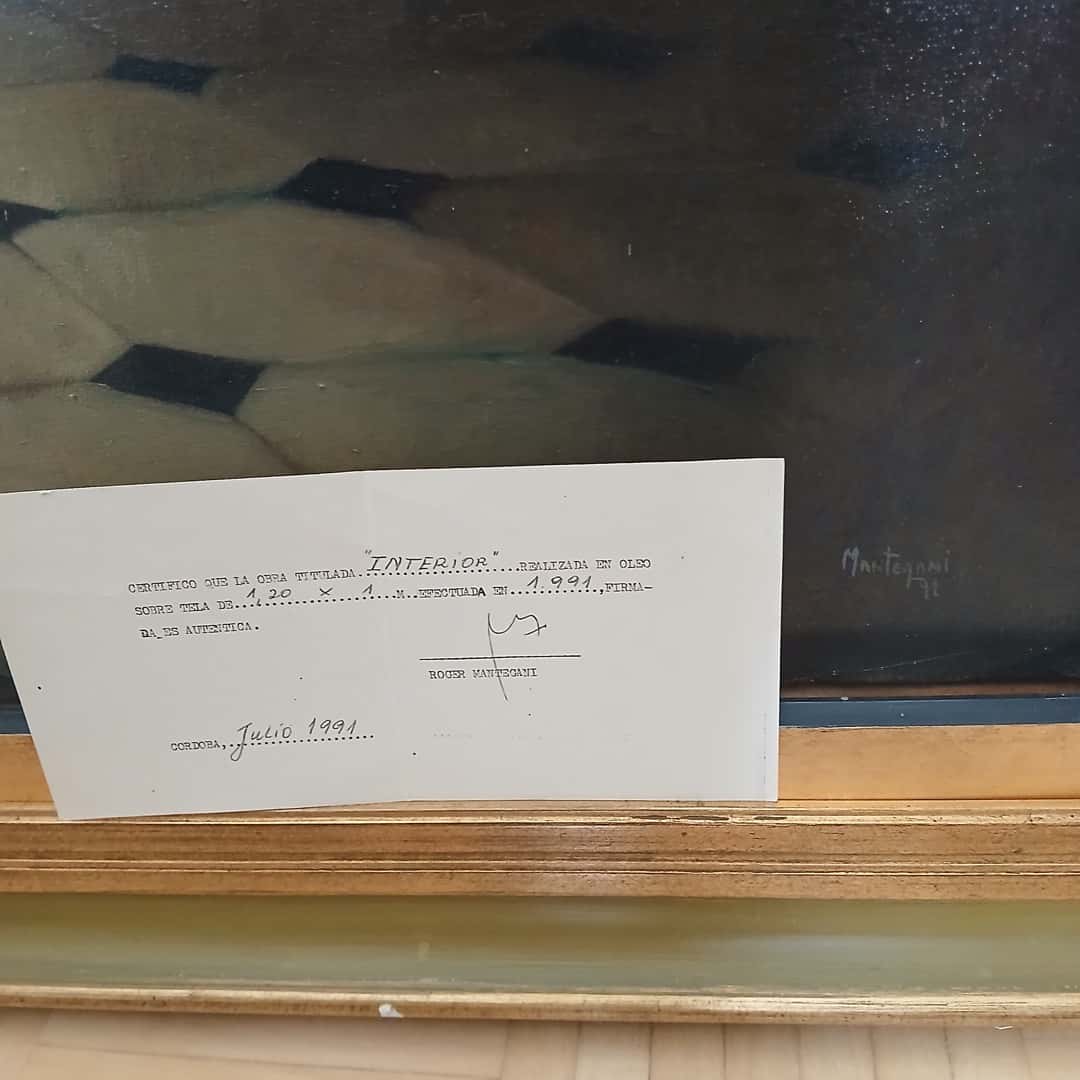 CERTIFICO QUE LA OBRA TITULADA.."INTERIOR"...REALIZADA EN OLEO
SOBRE TELA DE..1,20 x 1...M..EFECTUADA EN..1.991..,FIRMA-
DA_ES AUTENTICA.
ROGER MANTEGANI
CORDOBA,..Julio 1991...
Mantegani
91